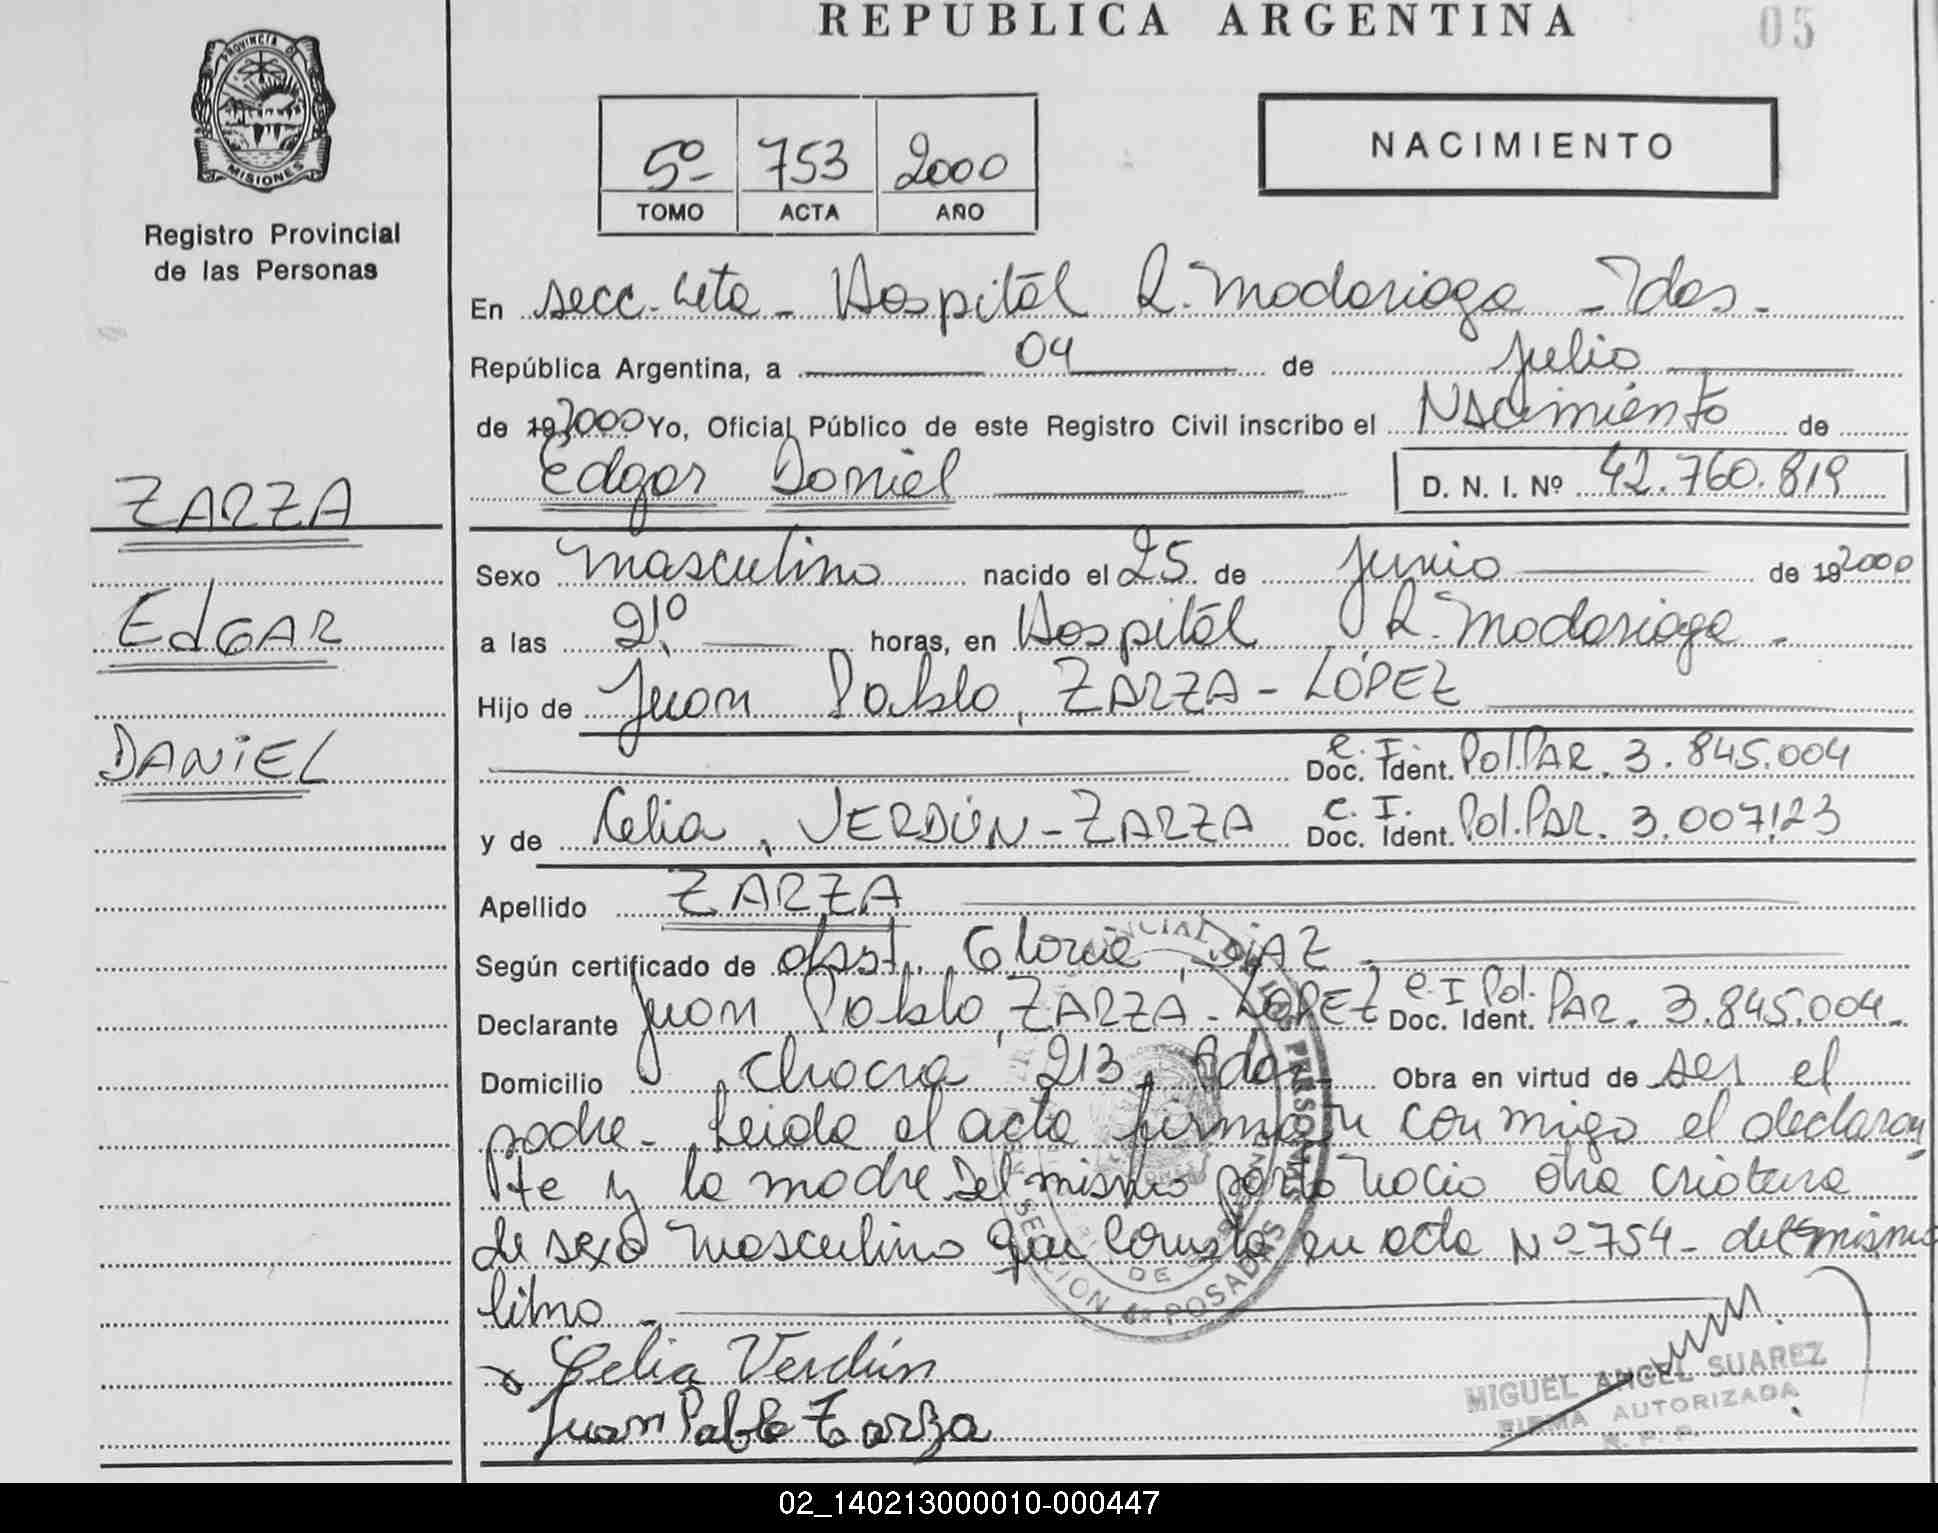 REPUBLICA ARGENTINA
05
PROVINCIA DE
MISIONES
Registro Provincial
de las Personas
5º 753 2000
TOMO ACTA AÑO
NACIMIENTO
En secc. 4ta - Hospital R. Madariaga - Pdas -
República Argentina, a 04 de Julio
de 19 2000 Yo, Oficial Público de este Registro Civil inscribo el Nacimiento de
Edgar Daniel D. N. I. Nº 42.760.819
ZARZA
Sexo masculino nacido el 25 de Junio de 19 2000
EdGAR
a las 21º horas, en Hospital R. Madariaga -
Hijo de Juan Pablo, ZARZA - LÓPEZ
DANiEL
Doc. Ident. C. I. Pol. PAR. 3.845.004
y de Celia, VERDÚN - ZARZA Doc. Ident. C. I. Pol. PAR. 3.007.123
Apellido ZARZA
Según certificado de obst. Gloria DiAZ
Declarante Juan Pablo, ZARZA - LOPEZ Doc. Ident. C. I Pol. PAR. 3.845.004 -
Domicilio chacra 213, Pdas Obra en virtud de ser el
padre - Leida el acta firman conmigo el declaran
te y la madre Del mismo parto nacio otra criatura
de sexo masculino que consta en acta Nº 754 - del mismo
libro -
Celia Verdún
Juan Pablo Zarza
DE LAS PERSONAS
SECCION 4ª POSADAS
MIGUEL ANGEL SUAREZ
FIRMA AUTORIZADA
R. P. P.
02_140213000010-000447